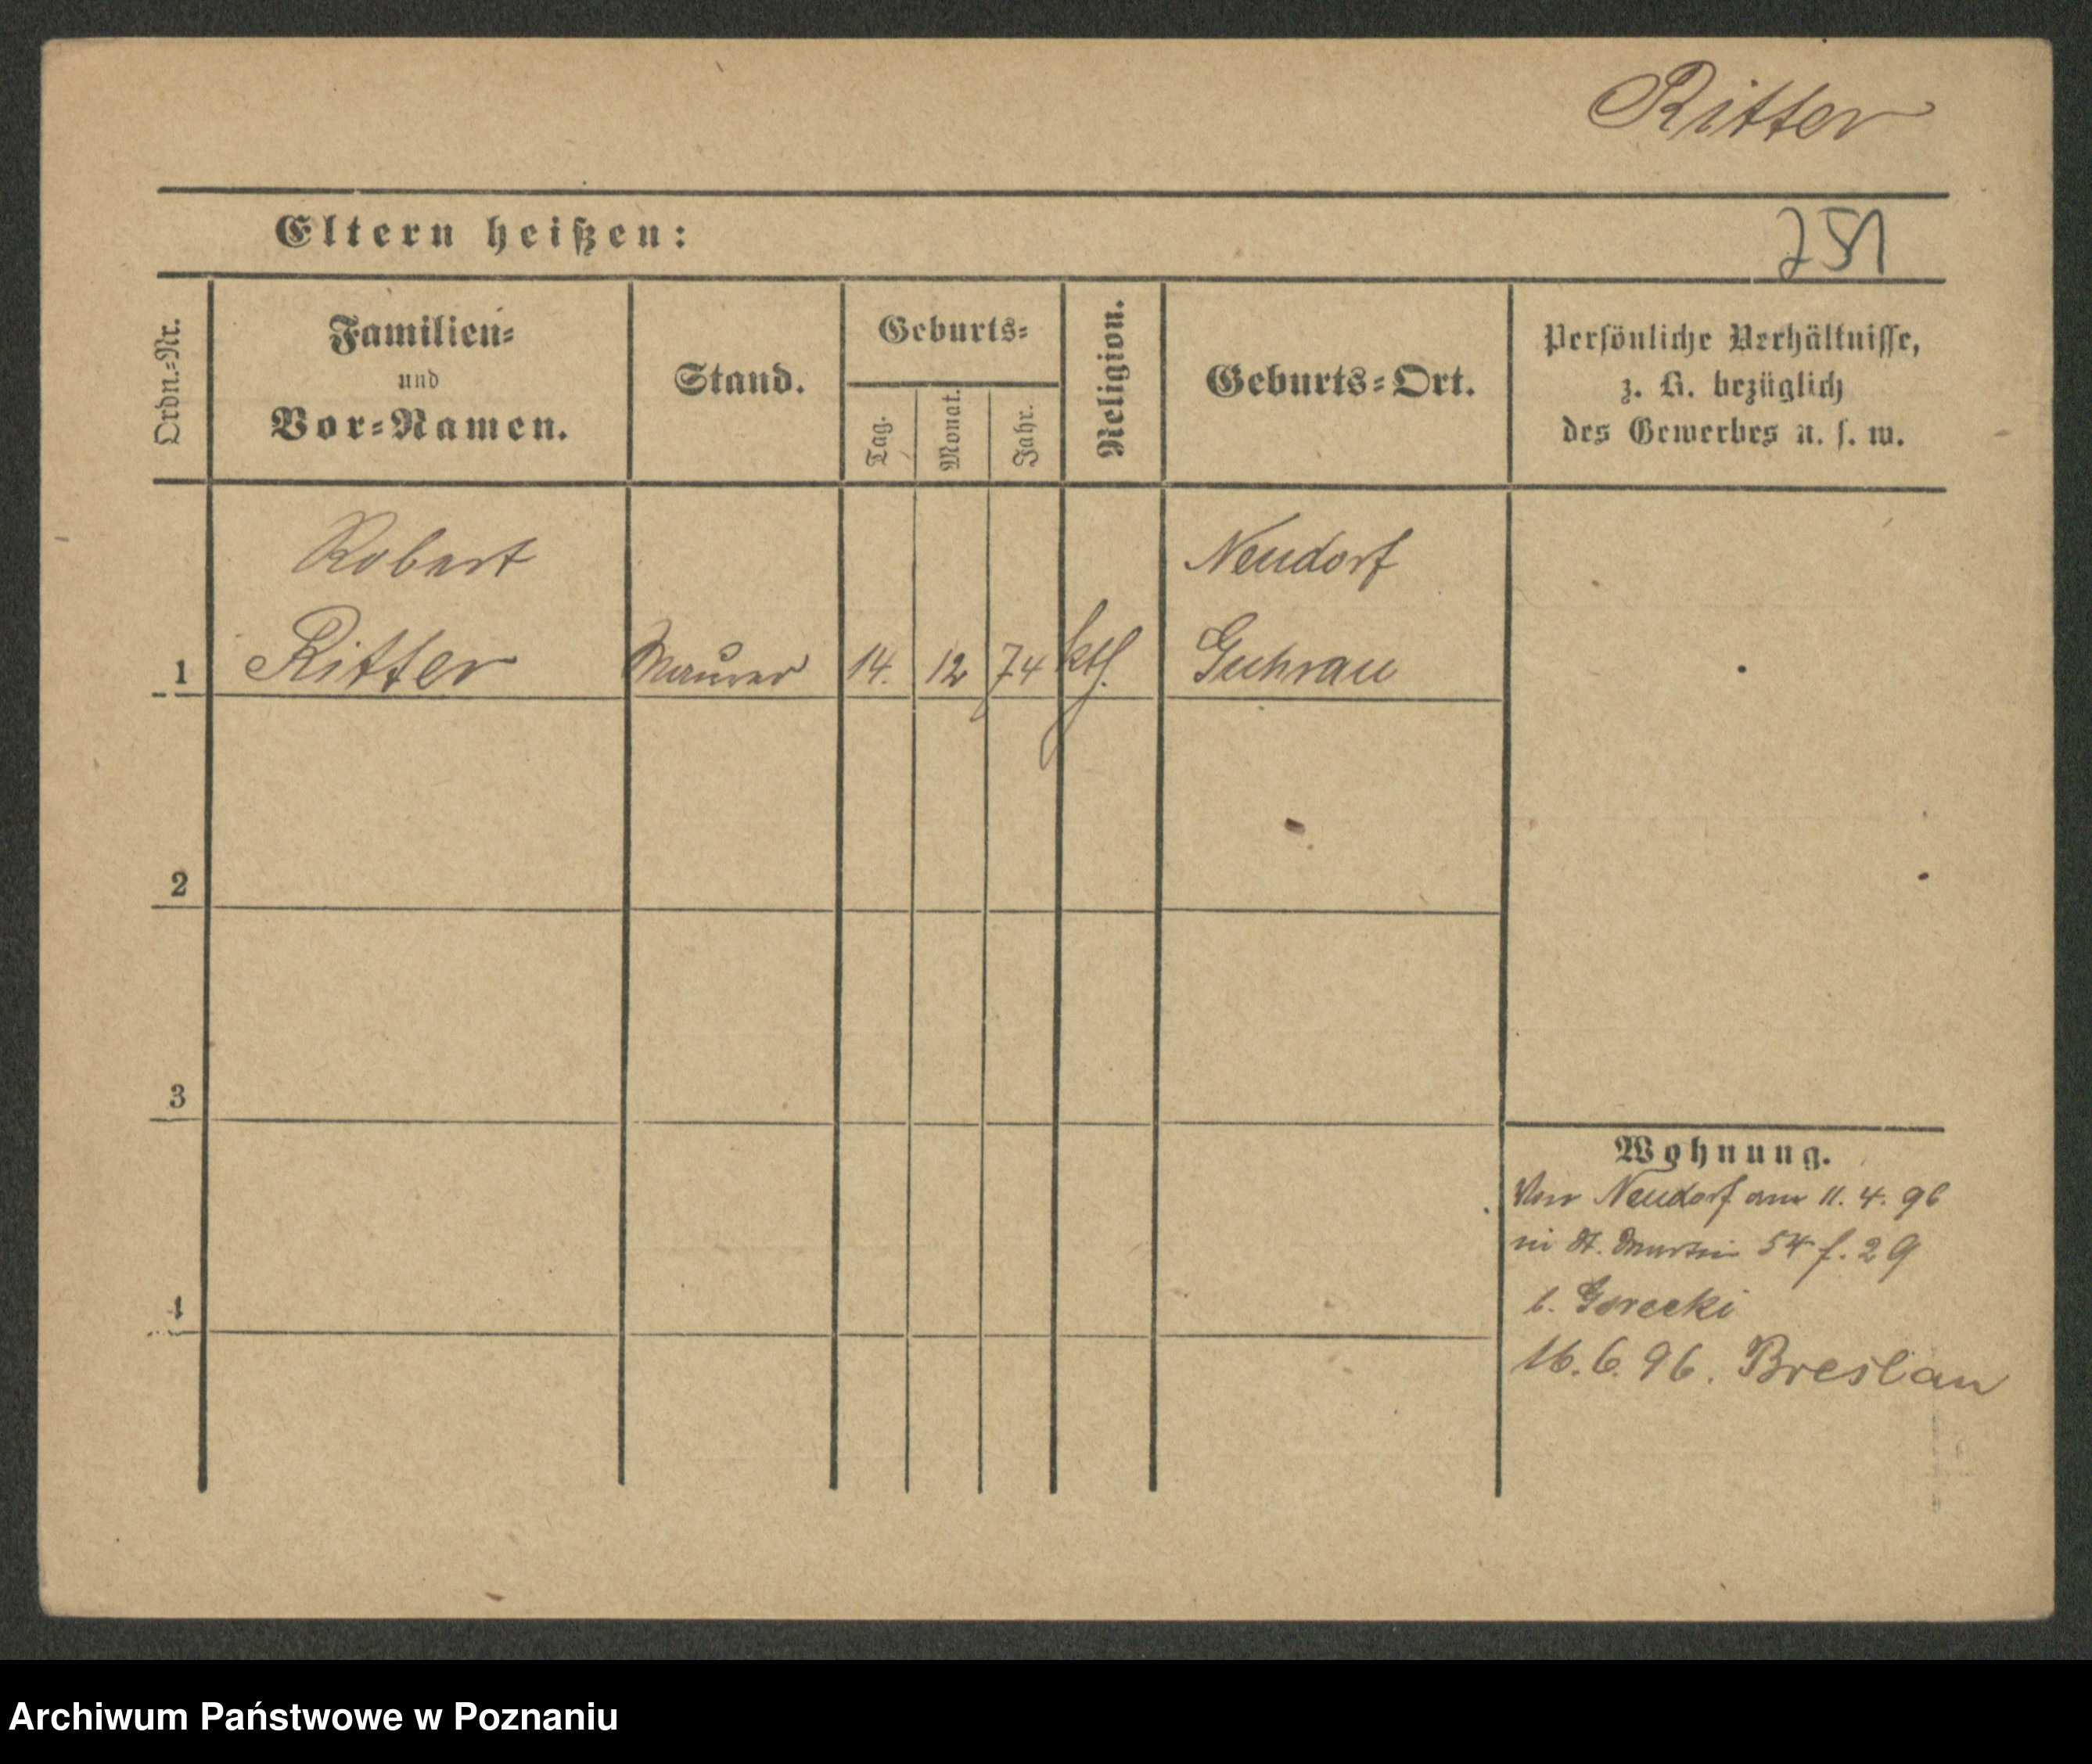 Ritter
Eltern heißen:
751
Ordn.-Nr.
Familien-
und
Vor-Namen.
Stand.
Geburts-
Tag.
Monat.
Jahr.
Religion.
Geburts-Ort.
Persönliche Verhältnisse,
z. B. bezüglich
des Gewerbes u. s. w.
Robert Neudorf
1 Ritter Maurer 14. 12 74 ktl. Guhrau
2
3
Wohnung.
Von Neudorf am 11. 4. 96
in St. Martin 54 f. 29
b. Gorecki
4
16. 6. 96. Breslau
Archiwum Państwowe w Poznaniu